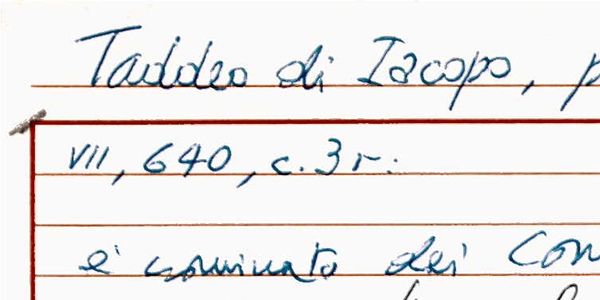 Taddeo di Iacopo, p
VII, 640, c. 3 r.:
è nominato dei Con